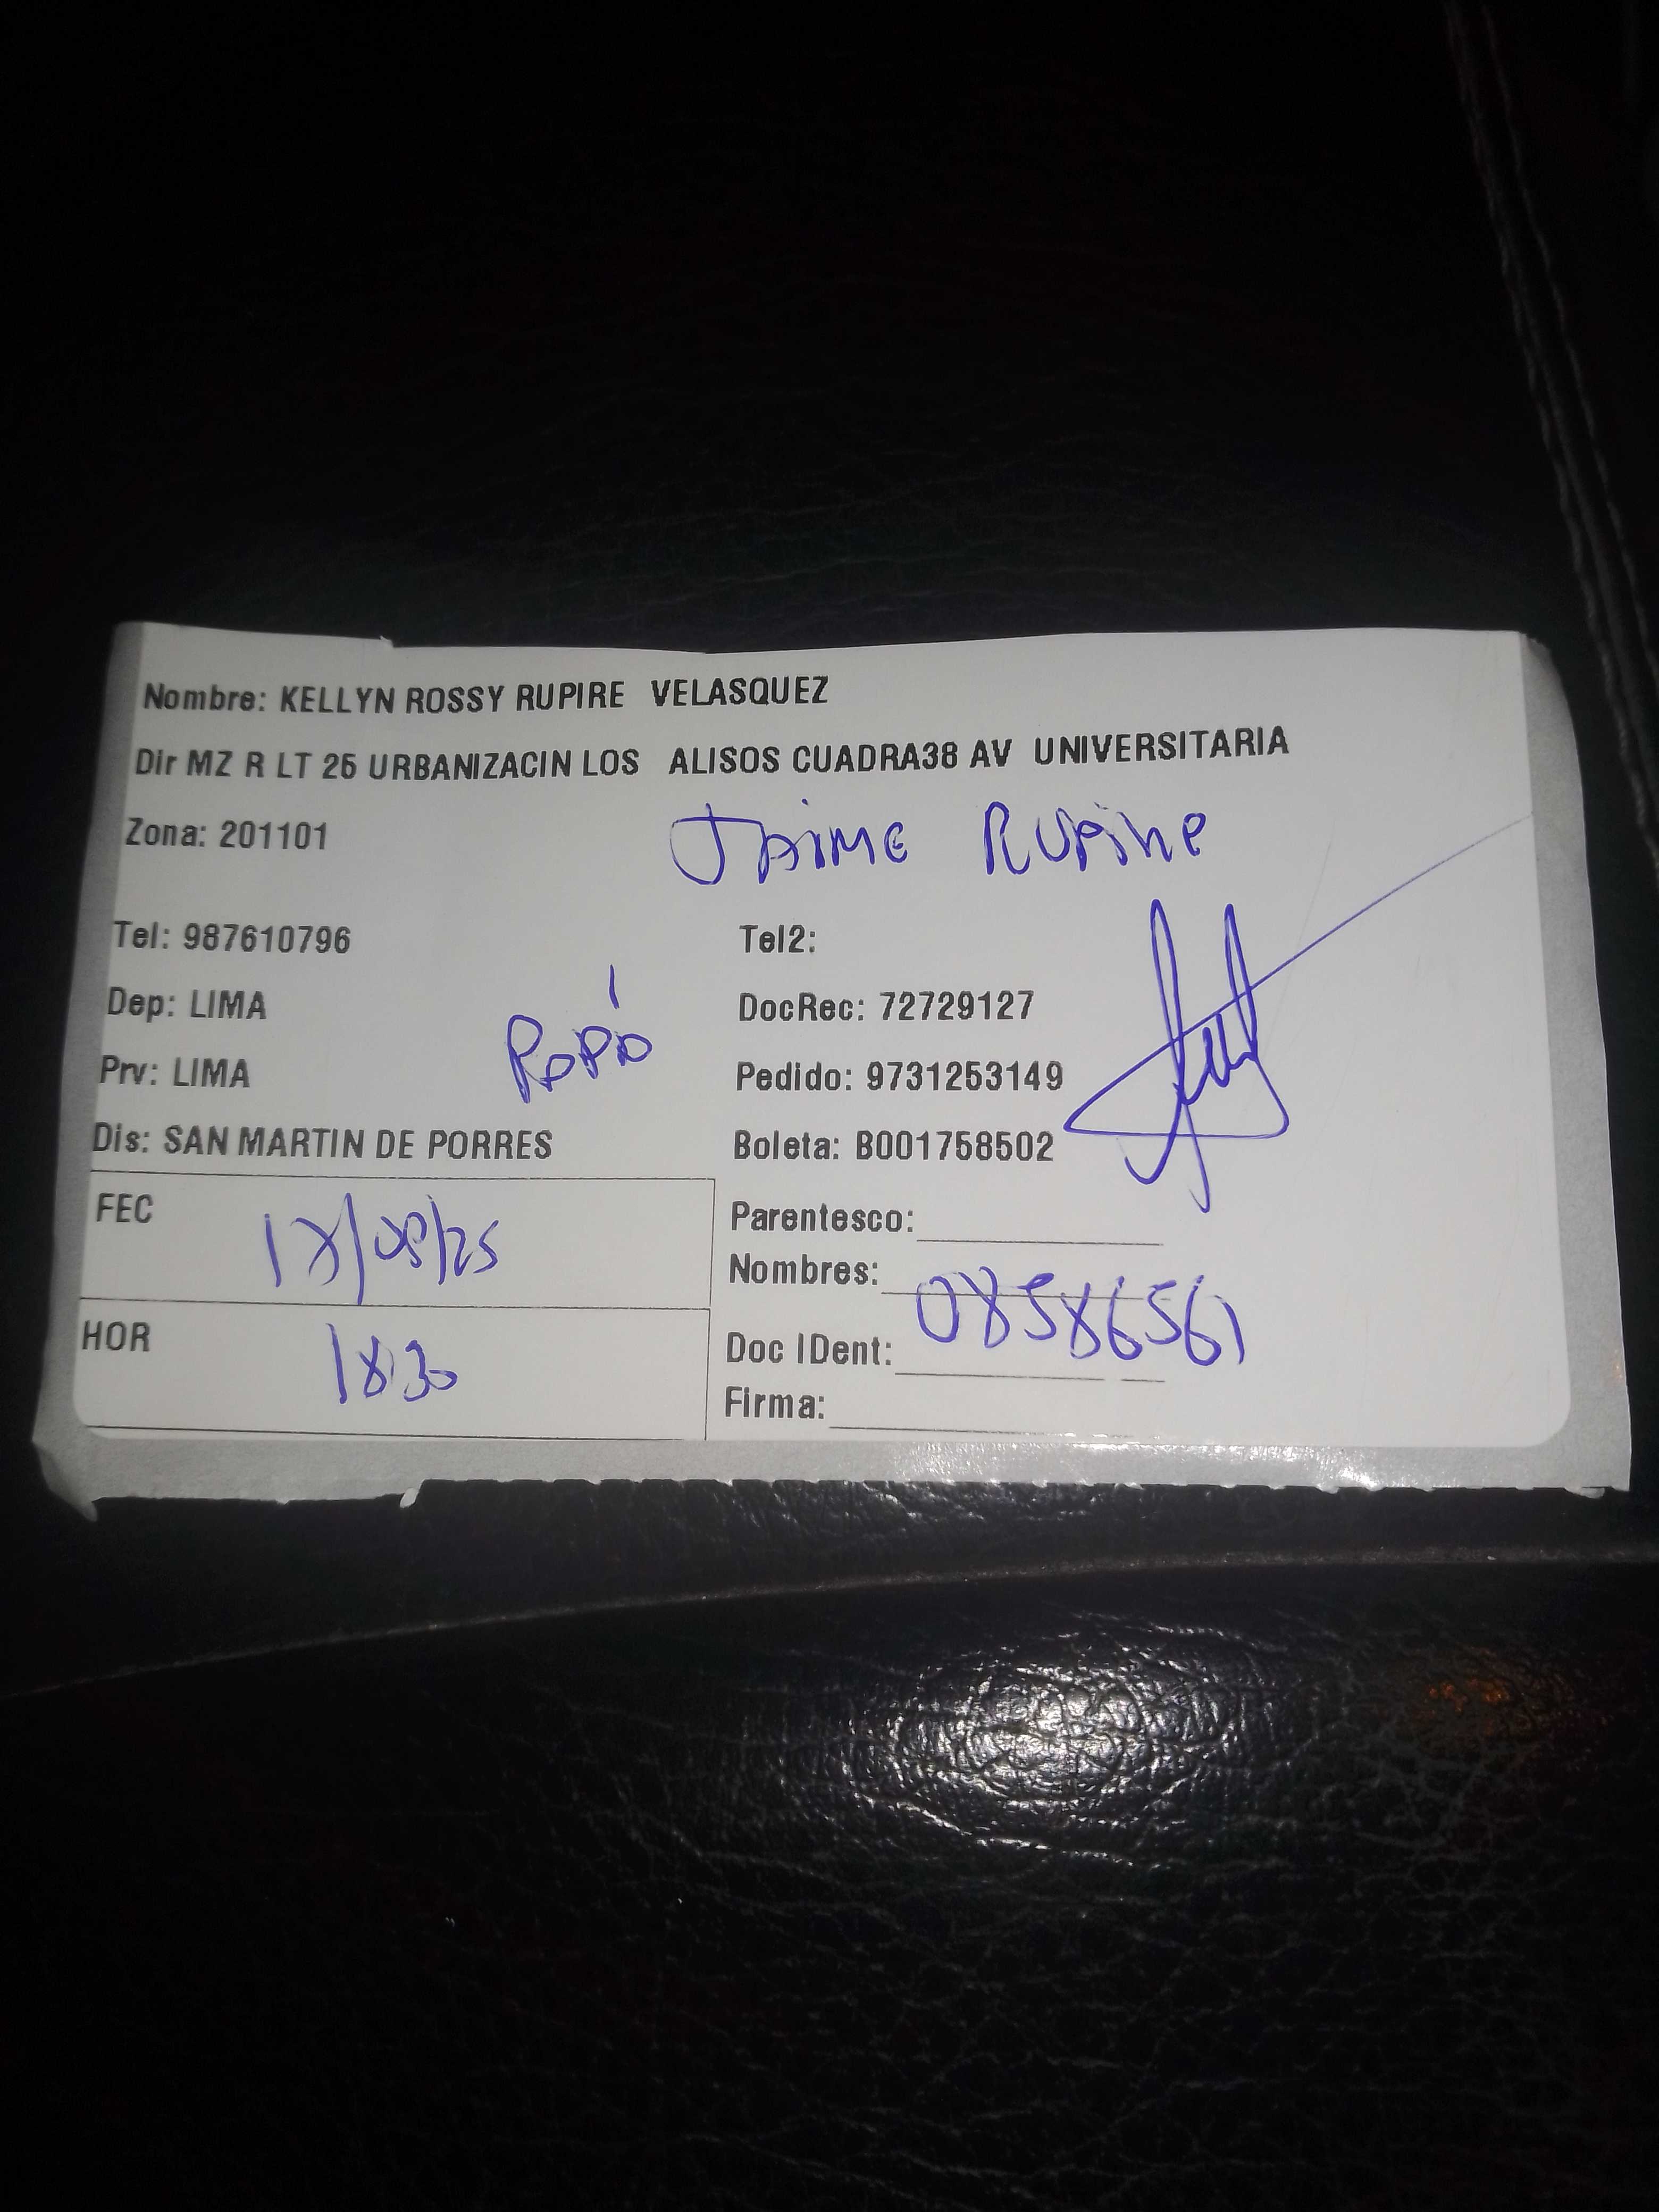 Nombre: KELLYN ROSSY RUPIRE VELASQUEZ
Dir MZ R LT 25 URBANIZACIN LOS ALISOS CUADRA38 AV UNIVERSITARIA
Zona: 201101
JAIME RUPIRE
Tel: 987610796 Tel2:
Dep: LIMA DocRec: 72729127
PAPÁ
Prv: LIMA Pedido: 9731253149
Dis: SAN MARTIN DE PORRES Boleta: B001758502
FEC 18/08/25 Parentesco:
Nombres:
HOR 18:30 Doc IDent: 08586561
Firma: